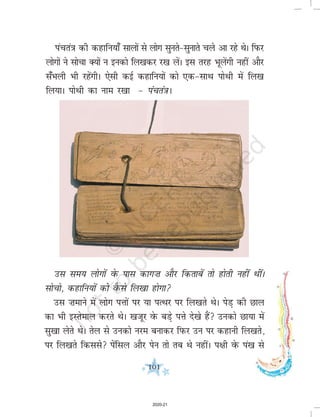 पंचतंत्र की कहानियाँ सालों से लोग सुनते-सुनाते चले आ रहे थे। फिर
लोगों ने सोचा क्यों न इनको लिखकर रख लें। इस तरह भूलेंगी नहीं और
सँभली भी रहेंगी। ऐसी कई कहानियों को एक-साथ पोथी में लिख
लिया। पोथी का नाम रखा - पंचतंत्र।
उस समय लोगों के पास कागज और किताबें तो होती नहीं थीं।
सोचो, कहानियों को कैसे लिखा होगा?
उस जमाने में लोग पत्तों पर या पत्थर पर लिखते थे। पेड़ की छाल
का भी इस्तेमाल करते थे। खजूर के बड़े पत्ते देखे हैं? उनको छाया में
सुखा लेते थे। तेल से उनको नरम बनाकर फिर उन पर कहानी लिखते,
पर लिखते किससे? पेंसिल और पेन तो तब थे नहीं। पक्षी के पंख से
101
2020-21